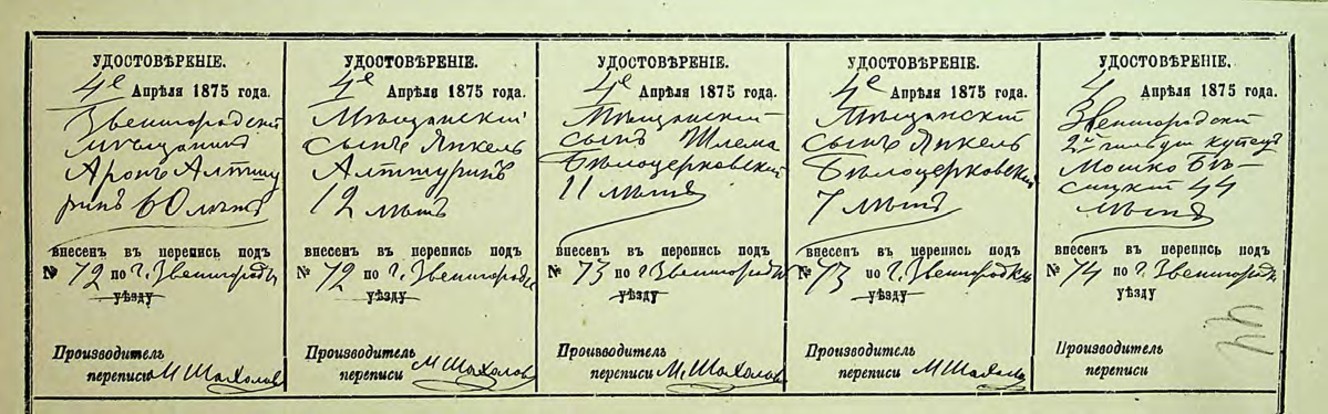 УДОСТОВѢРЕНІЕ.
4е Апрѣля 1875 года.
Звенигородскій
мѣщанинъ
Аронъ Алтшу
ринъ 60 лѣтъ
внесенъ въ перепись подъ
№ 72 по г. Звенигородкѣ
уѣзду
Производитель
переписи М Шахолов
УДОСТОВѢРЕНІЕ.
4е Апрѣля 1875 года.
Мѣщанскій
сынъ Янкель
Алтшуринъ
12 лѣтъ
внесенъ въ перепись подъ
№ 72 по г. Звенигородкѣ
уѣзду
Производитель
переписи М Шахолов
УДОСТОВѢРЕНІЕ.
4е Апрѣля 1875 года.
Мѣщанскій
сынъ Шлема
Бѣлоцерковскій
11 лѣтъ
внесенъ въ перепись подъ
№ 73 по г Звенигородкѣ
уѣзду
Производитель
переписи М. Шахолов
УДОСТОВѢРЕНІЕ.
4е Апрѣля 1875 года.
Мѣщанскій
сынъ Янкель
Бѣлоцерковскій
7 лѣтъ
внесенъ въ перепись подъ
№ 73 по г. Звенигородкѣ
уѣзду
Производитель
переписи М Шахолов
УДОСТОВѢРЕНІЕ.
4 Апрѣля 1875 года.
Звенигородскій
2й гильдіи купецъ
Мошко Бѣ-
сицкій 44
лѣтъ
внесенъ въ перепись подъ
№ 74 по г. Звенигородкѣ
уѣзду
Производитель
переписи